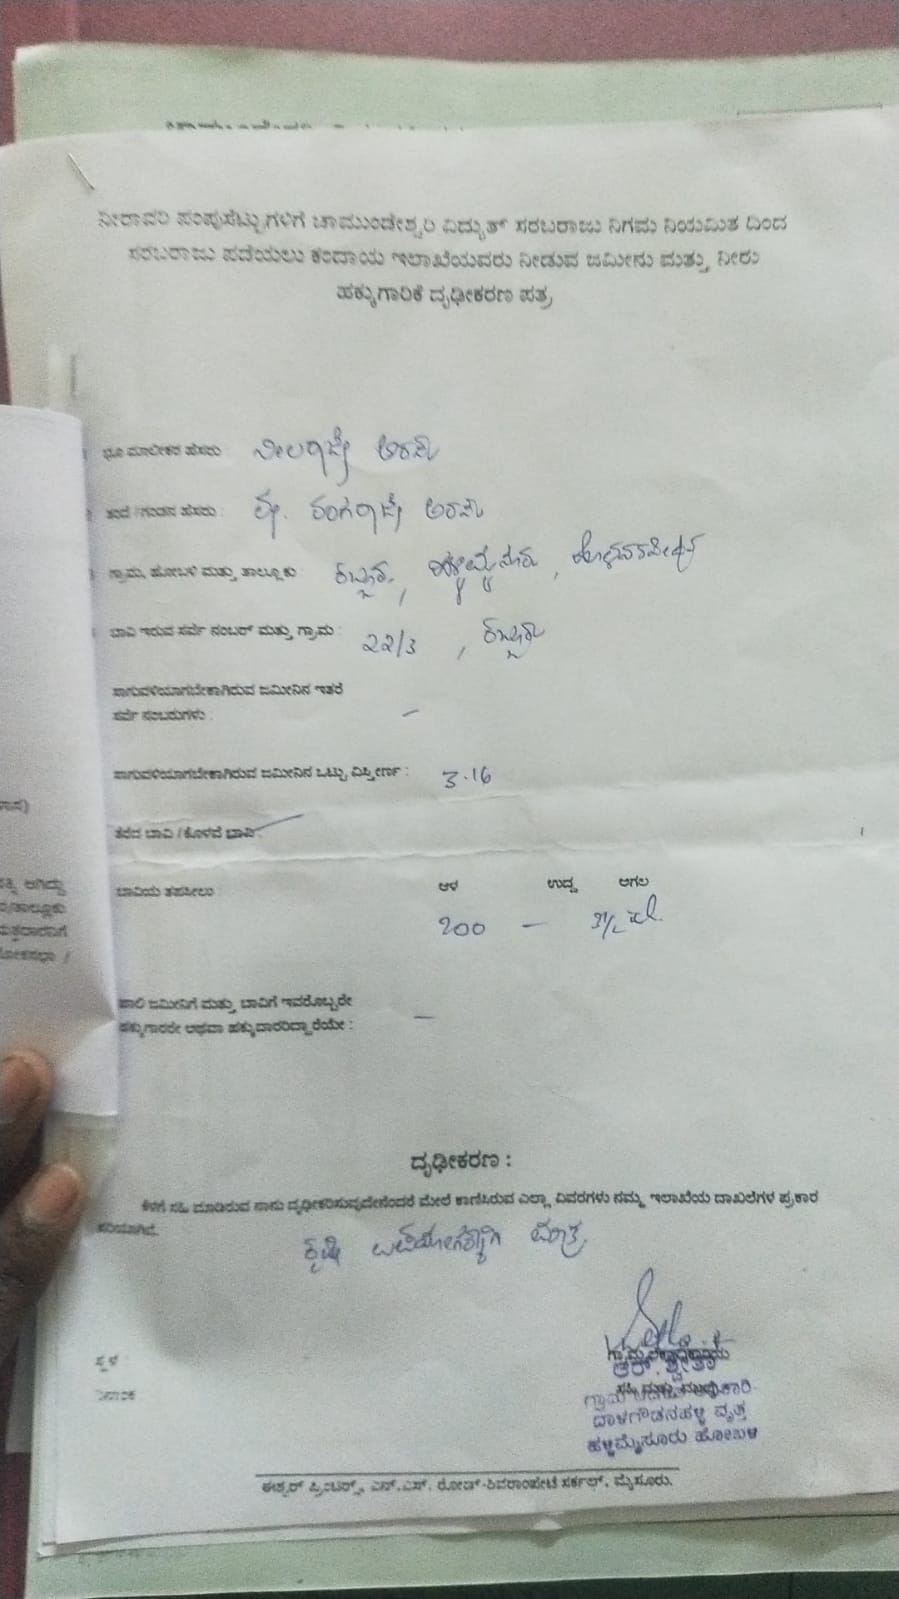 ನೀರಾವರಿ ಪಂಪುಸೆಟ್ಟುಗಳಿಗೆ ಚಾಮುಂಡೇಶ್ವರಿ ವಿದ್ಯುತ್ ಸರಬರಾಜು ನಿಗಮ ನಿಯಮಿತ ದಿಂದ
ಸರಬರಾಜು ಪಡೆಯಲು ಕಂದಾಯ ಇಲಾಖೆಯವರು ನೀಡುವ ಜಮೀನು ಮತ್ತು ನೀರು
ಹಕ್ಕುಗಾರಿಕೆ ದೃಢೀಕರಣ ಪತ್ರ
ಭೂ ಮಾಲೀಕರ ಹೆಸರು: ನೀಲರಾಜೇ ಅರಸ್
ತಂದೆ /ಗಂಡನ ಹೆಸರು : ರಂಗರಾಜೇ ಅರಸ್
ಗ್ರಾಮ, ಹೋಬಳಿ ಮತ್ತು ತಾಲ್ಲೂಕು ಹಳ್ಳಿಮೈಸೂರು ,
ಬಾವಿ ಇರುವ ಸರ್ವೆ ನಂಬರ್ ಮತ್ತು ಗ್ರಾಮ : 22/3 ,
ಸಾಗುವಳಿಯಾಗಬೇಕಾಗಿರುವ ಜಮೀನಿನ ಇತರೆ
ಸರ್ವೆ ನಂಬರುಗಳು : –
ಸಾಗುವಳಿಯಾಗಬೇಕಾಗಿರುವ ಜಮೀನಿನ ಒಟ್ಟು ವಿಸ್ತೀರ್ಣ : 3.16
ತೆರೆದ ಬಾವಿ /ಕೊಳವೆ ಭಾವಿ:
ಬಾವಿಯ ತಪಸೀಲು : ಆಳ ಉದ್ದ ಅಗಲ
200 –
ಖಾಲಿ ಜಮೀನಿಗೆ ಮತ್ತು ಬಾವಿಗೆ ಇವರೊಬ್ಬರೇ
ಹಕ್ಕುಗಾರರೇ ಅಥವಾ ಹಕ್ಕುದಾರರಿದ್ದಾರೆಯೇ : –
ದೃಢೀಕರಣ :
ಕೆಳಗೆ ಸಹಿ ಮಾಡಿರುವ ನಾನು ದೃಢೀಕರಿಸುವುದೇನೆಂದರೆ ಮೇಲೆ ಕಾಣಿಸಿರುವ ಎಲ್ಲಾ ವಿವರಗಳು ನಮ್ಮ ಇಲಾಖೆಯ ದಾಖಲೆಗಳ ಪ್ರಕಾರ
ಸರಿಯಾಗಿದೆ.
ಕೃಷಿ ಉಪಯೋಗಕ್ಕಾಗಿ ಮಾತ್ರ.
ಸ್ಥಳ :
ದಿನಾಂಕ
ಸಹಿ ಮತ್ತು ಮುದ್ರೆ
ದಾಳಗೌಡನಹಳ್ಳಿ ವೃತ್ತ
ಹಳ್ಳಿಮೈಸೂರು ಹೋಬಳಿ
ಈಶ್ವರ್ ಪ್ರಿಂಟರ್ಸ್, ಎನ್.ಎಸ್. ರೋಡ್-ಶಿವರಾಂಪೇಟೆ ಸರ್ಕಲ್, ಮೈಸೂರು.